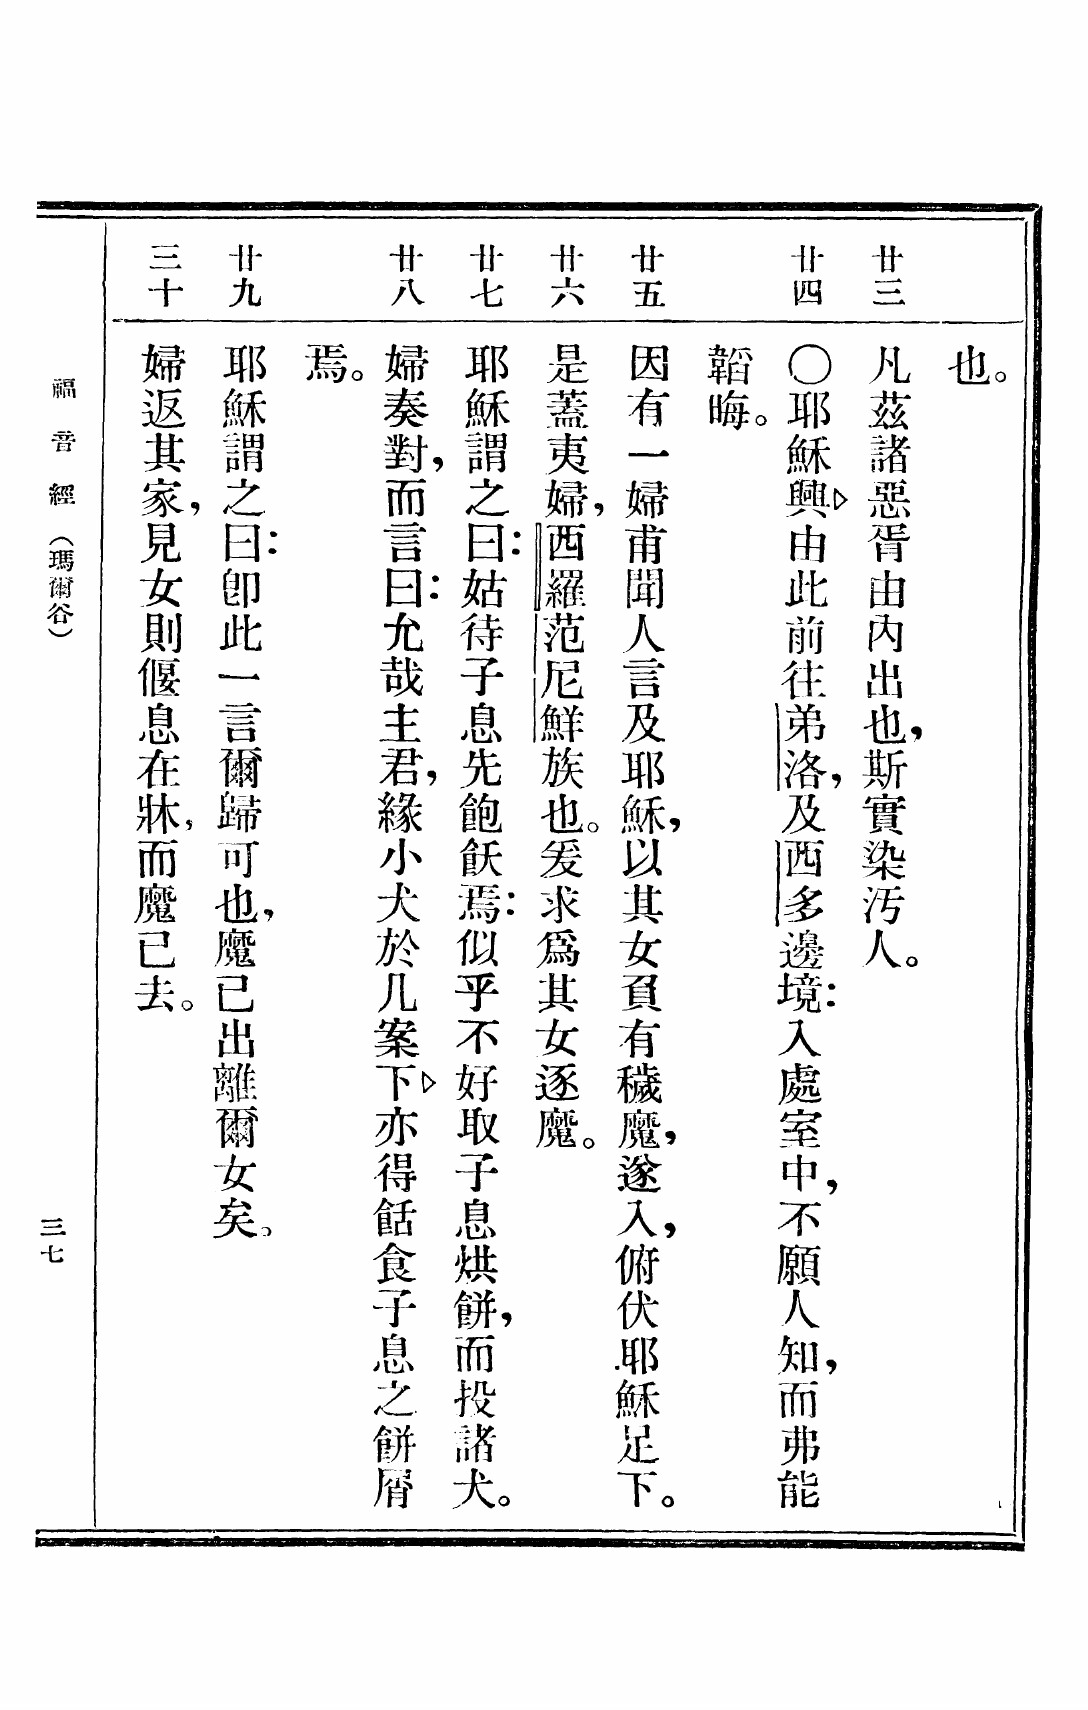 也。
廿三 凡茲諸惡胥由內出也，斯實染汚人。
廿四 〇耶穌興▷由此前往弟洛，及西多邊境：入處室中，不願人知，而弗能
韜晦。
廿五 因有一婦甫聞人言及耶穌，以其女負有穢魔，遂入，俯伏耶穌足下。
廿六 是蓋夷婦，西羅范尼鮮族也。爰求爲其女逐魔。
廿七 耶穌謂之曰：姑待子息先飽飫焉：似乎不好取子息烘餅，而投諸犬。
廿八 婦奏對，而言曰：允哉主君，緣小犬於几案下▷亦得餂食子息之餅屑
焉。
廿九 耶穌謂之曰：卽此一言爾歸可也，魔已出離爾女矣。
三十 婦返其家，見女則偃息在牀，而魔已去。
福音經（瑪爾谷）
三七